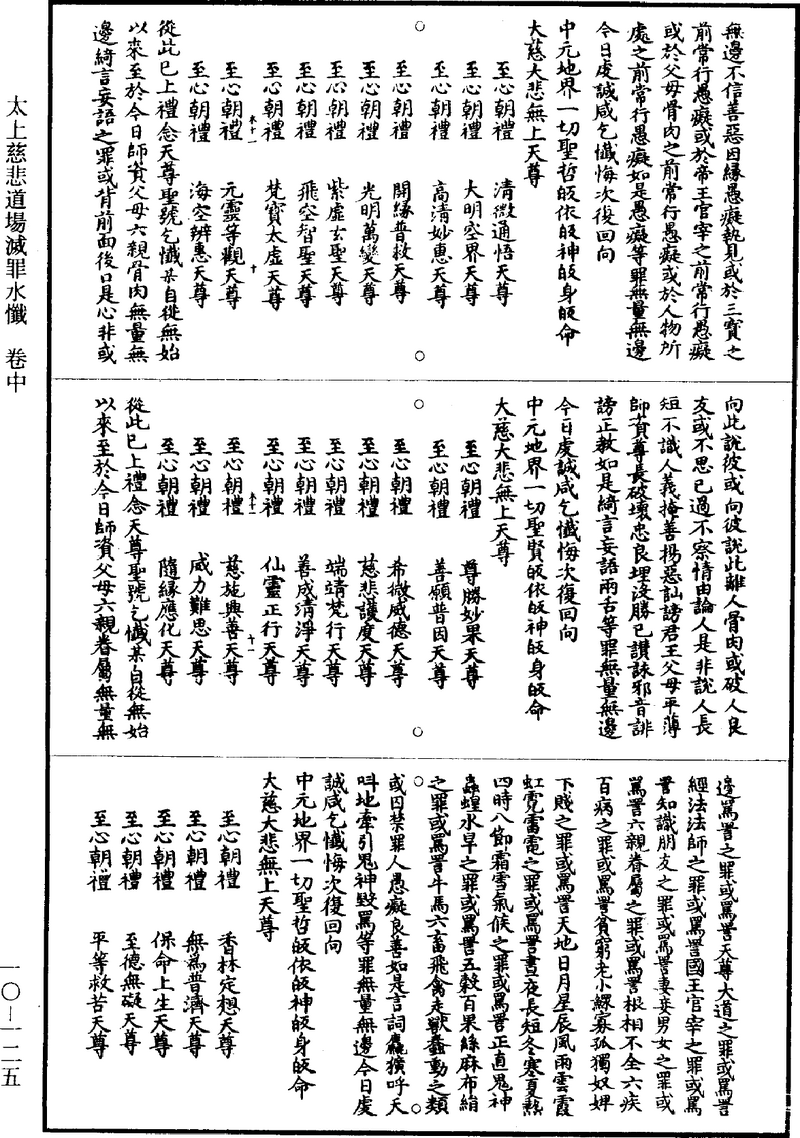 無邊不信善惡因緣愚癡執見或於三寶之
前常行愚癡或於帝王官宰之前常行愚癡
或於父母骨肉之前常行愚癡或於人物所
處之前常行愚癡如是愚癡等罪無量無邊
今日虔誠咸乞懺悔次復回向
中元地界一切聖哲皈依皈神皈身皈命
大慈大悲無上天尊
至心朝禮　清微通悟天尊
至心朝禮　大明空界天尊
至心朝禮　高清妙惠天尊
至心朝禮　開緣普救天尊
至心朝禮　光明萬變天尊
至心朝禮　紫虛玄聖天尊
至心朝禮　飛空智聖天尊
至心朝禮　梵寶太虛天尊
至心朝禮　元靈等觀天尊
至心朝禮　海空辨惠天尊
從此已上禮念天尊聖號乞懺某自從無始
以來至於今日師資父母六親骨肉無量無
邊綺言妄語之罪或背前面後口是心非或
向此說彼或向彼說此離人骨肉或破人良
友或不思已過不察情由論人是非說人長
短不識人義掩善揚惡訕謗君王父母平薄
師資尊長破壞忠良埋沒勝已讚詠邪音誹
謗正教如是綺言妄語兩舌等罪無量無邊
今日虔誠咸乞懺悔次復回向
中元地界一切聖賢皈依皈神皈身皈命
大慈大悲無上天尊
至心朝禮　尊勝妙果天尊
至心朝禮　善願普因天尊
至心朝禮　希微威德天尊
至心朝禮　慈悲護度天尊
至心朝禮　端靖梵行天尊
至心朝禮　善成清淨天尊
至心朝禮　仙靈正行天尊
至心朝禮　慈施興善天尊
至心朝禮　威力難思天尊
至心朝禮　隨緣應化天尊
從此已上禮念天尊聖號乞懺某自從無始
以來至於今日師資父母六親眷屬無量無
邊罵詈之罪或罵詈天尊大道之罪或罵詈
經法法師之罪或罵詈國王官宰之罪或罵
詈知識朋友之罪或罵詈妻妾男女之罪或
罵詈六親眷屬之罪或罵詈根相不全六疾
百病之罪或罵詈貧窮老小鰥寡孤獨奴婢
下賤之罪或罵詈天地日月星辰風雨雲霞
虹霓雷電之罪或罵詈晝夜長短冬寒夏熱
四時八節霜雪氣候之罪或罵詈正直鬼神
蟲蝗水旱之罪或罵詈五穀百果絲麻布絹
之罪或罵詈牛馬六畜飛禽走獸蠢動之類
或囚禁罪人愚癡良善如是言詞麤獷呼天
叫地牽引鬼神毀罵等罪無量無邊今日虔
誠咸乞懺悔次復回向
中元地界一切聖哲皈依皈神皈身皈命
大慈大悲無上天尊
至心朝禮　香林定想天尊
至心朝禮　無為普濟天尊
至心朝禮　保命上生天尊
至心朝禮　至德無礙天尊
至心朝禮　平等救苦天尊
太上慈悲道場滅罪水懺　卷中
一〇—一二五